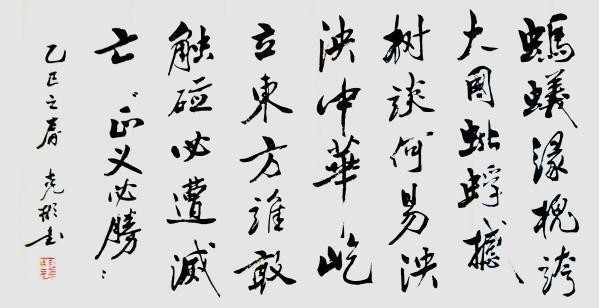 螞蟻缘槐誇
大國蚍蜉撼
树談何易泱
泱中華屹
立東方誰敢
触碰必遭滅
亡正义必勝
乙巳之春 克彬书